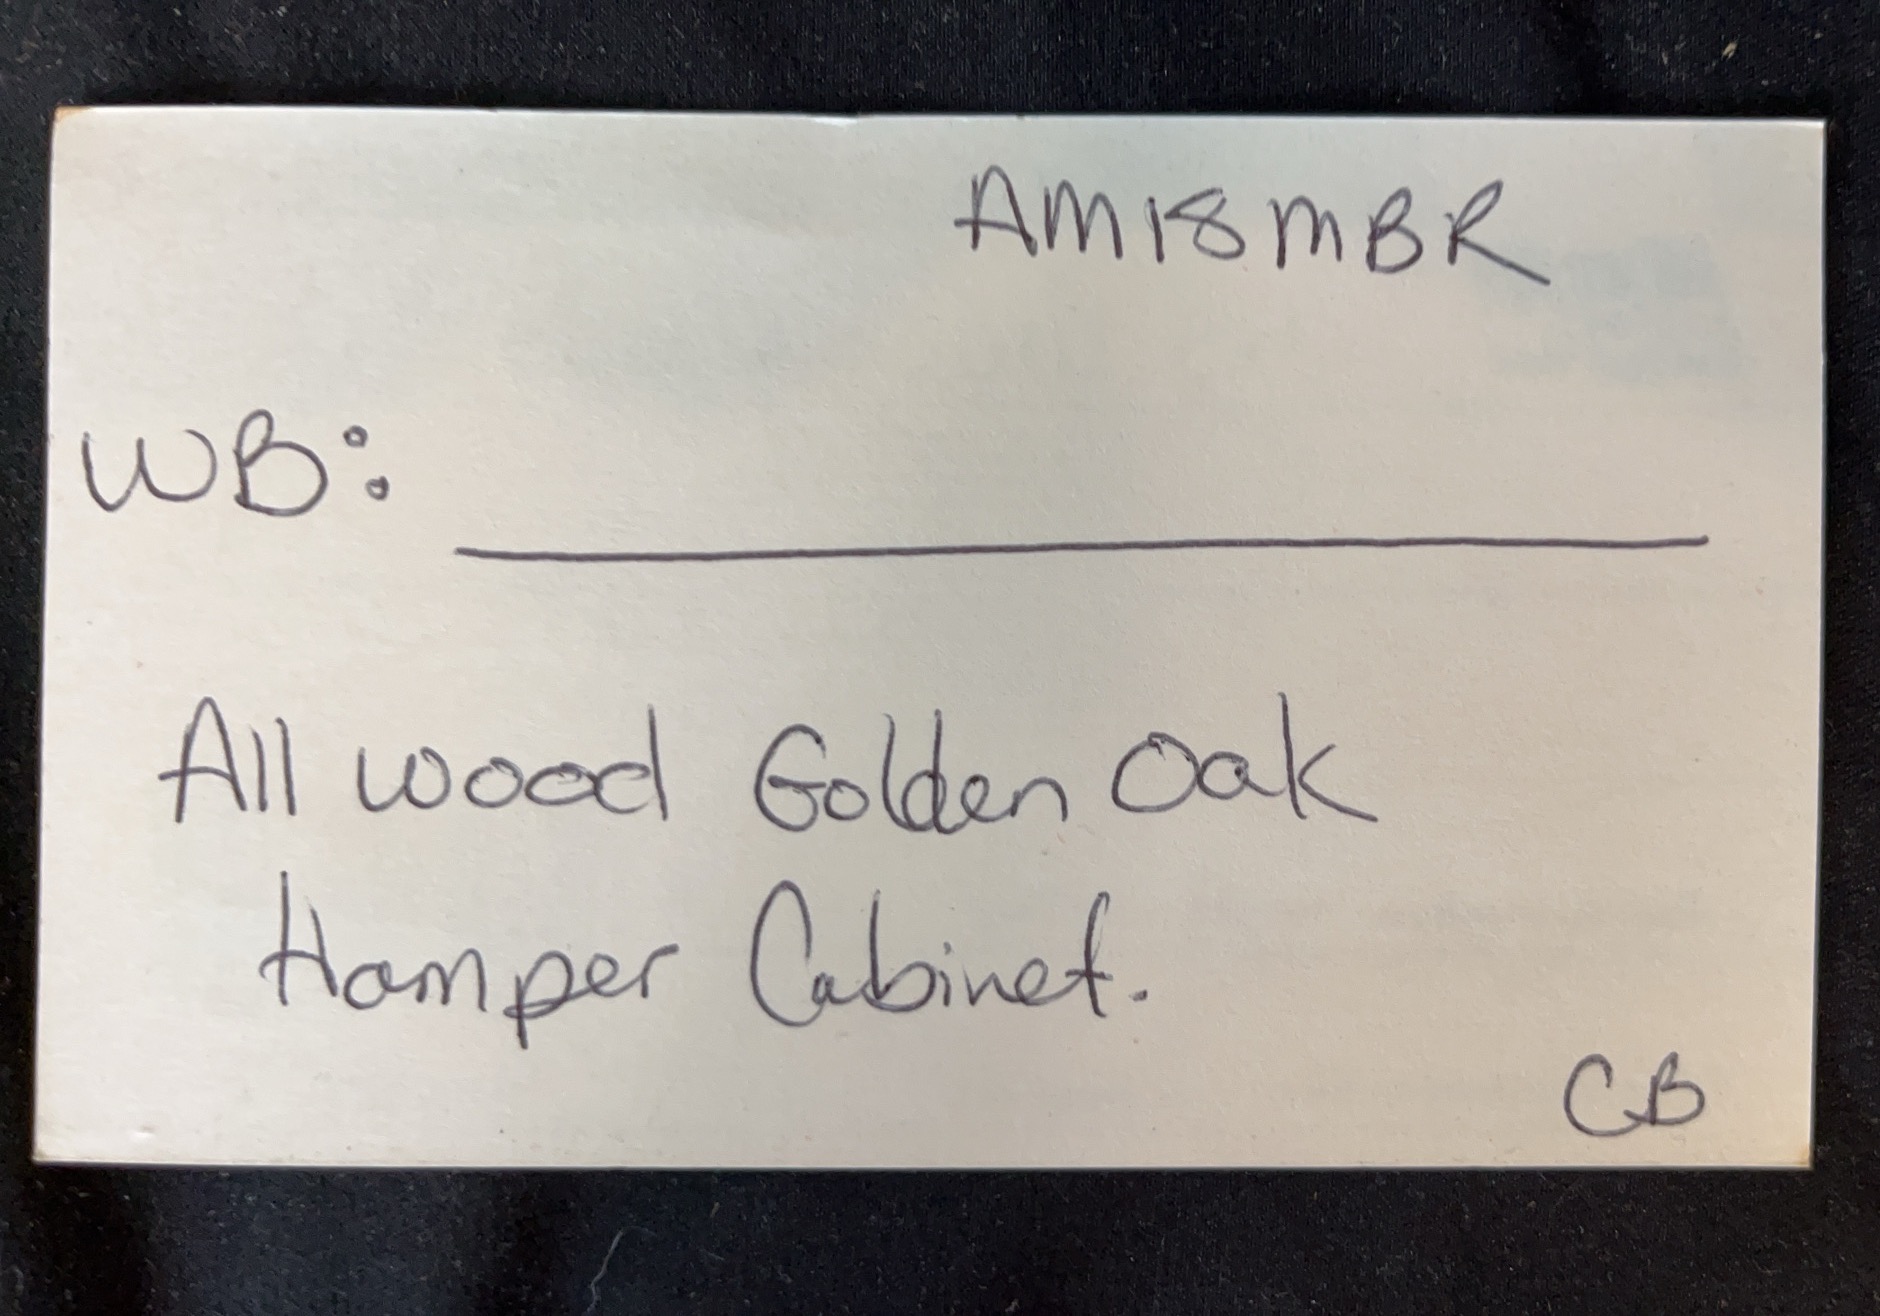 AM18MBR
WB:
All wood Golden Oak
Hamper Cabinet.
CB